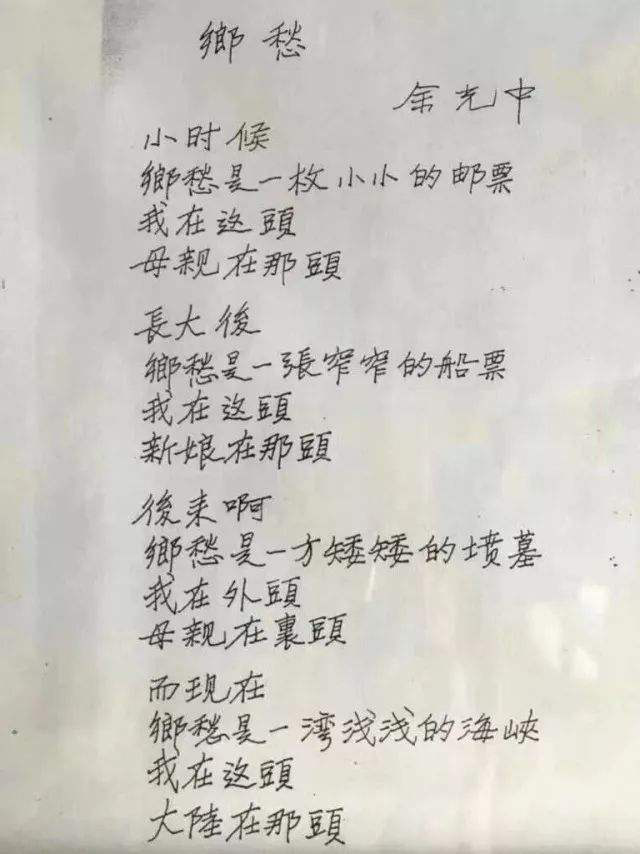 鄉愁
余光中
小时候
鄉愁是一枚小小的邮票
我在这頭
母親在那頭
長大後
鄉愁是一張窄窄的船票
我在这頭
新娘在那頭
後来啊
鄉愁是一方矮矮的坟墓
我在外頭
母親在裏頭
而现在
鄉愁是一湾浅浅的海峽
我在这頭
大陸在那頭